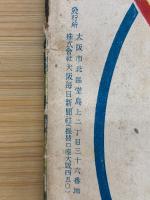 発行所
大阪市北區堂島上二丁目三十六番地
株式会社大阪毎日新聞社（振替口座大阪四五〇）